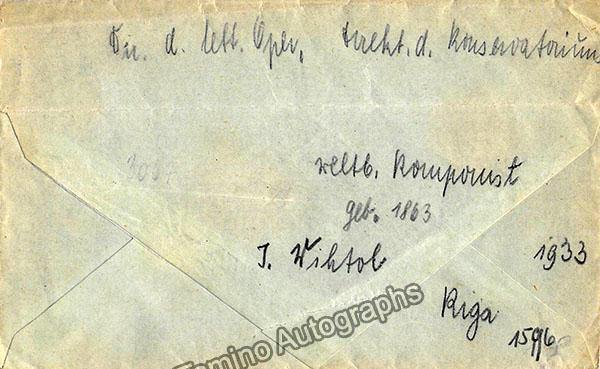 Dir. d. lett. Oper, Direkt. d. Konservatoriums
weltb. Komponist
geb. 1863
J. Wihtol
1933
Riga
Tamino Autographs